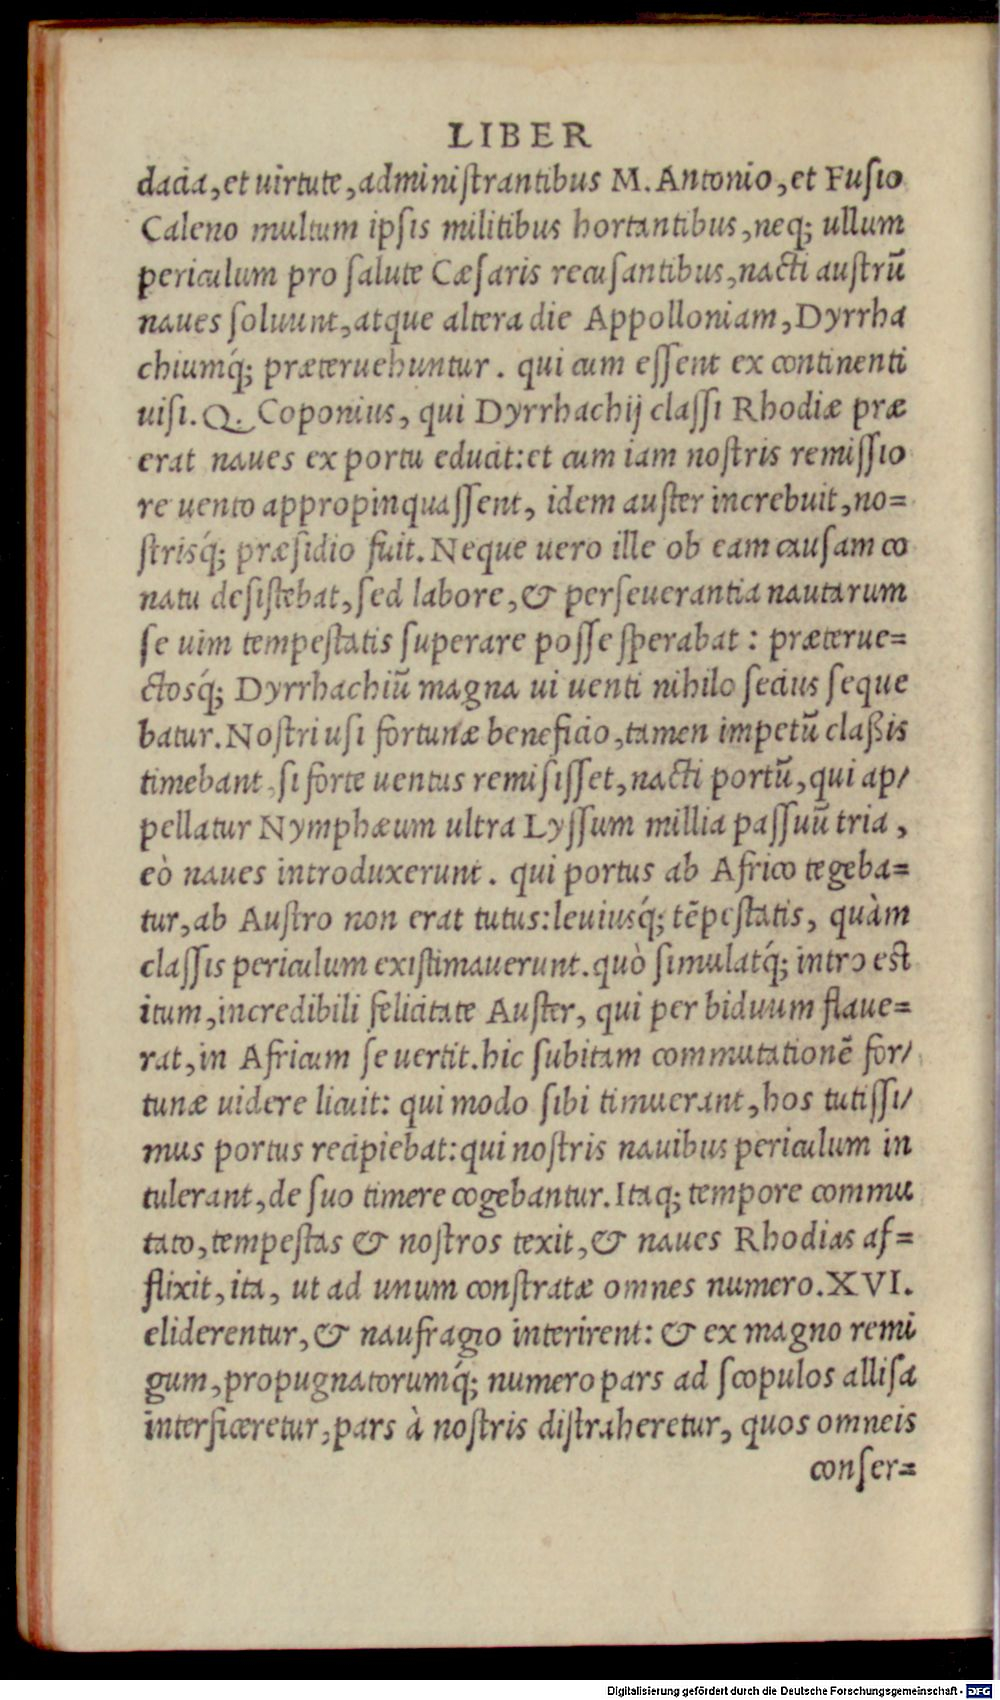 LIBER
dacia, et uirtute, administrantibus M. Antonio, et Fusio
Caleno multum ipsis militibus hortantibus, neq; ullum
periculum pro salute Cæsaris recusantibus, nacti austrũ
naues soluunt, atque altera die Appolloniam, Dyrrha
chiumq́; præteruehuntur. qui cum essent ex continenti
uisi. Q. Coponius, qui Dyrrhachij classi Rhodiæ præ
erat naues ex portu educit: et cum iam nostris remissio
re uento appropinquassent, idem auster increbuit, no=
strisq́; præsidio fuit. Neque uero ille ob eam causam co
natu desistebat, sed labore, & perseuerantia nautarum
se uim tempestatis superare posse sperabat : præterue=
ctosq́; Dyrrhachiũ magna ui uenti nihilo secius seque
batur. Nostri usi fortunæ beneficio, tamen impetũ claßis
timebant, si forte uentus remisisset, nacti portũ, qui ap/
pellatur Nymphæum ultra Lyssum millia passuũ tria,
eò naues introduxerunt. qui portus ab Africo tegeba=
tur, ab Austro non erat tutus: leuiusq́; tẽpestatis, quàm
classis periculum existimauerunt. quò simulatq́; intro est
itum, incredibili felicitate Auster, qui per biduum flaue=
rat, in Africum se uertit. hic subitam commutationẽ for/
tunæ uidere licuit: qui modo sibi timuerant, hos tutissi/
mus portus recipiebat: qui nostris nauibus periculum in
tulerant, de suo timere cogebantur. Itaq; tempore commu
tato, tempestas & nostros texit, & naues Rhodias af=
flixit, ita, ut ad unum constratæ omnes numero. XVI.
eliderentur, & naufragio interirent: & ex magno remi
gum, propugnatorumq́; numero pars ad scopulos allisa
interficeretur, pars à nostris distraheretur, quos omneis
conser=
Digitalisierung gefördert durch die Deutsche Forschungsgemeinschaft - DFG